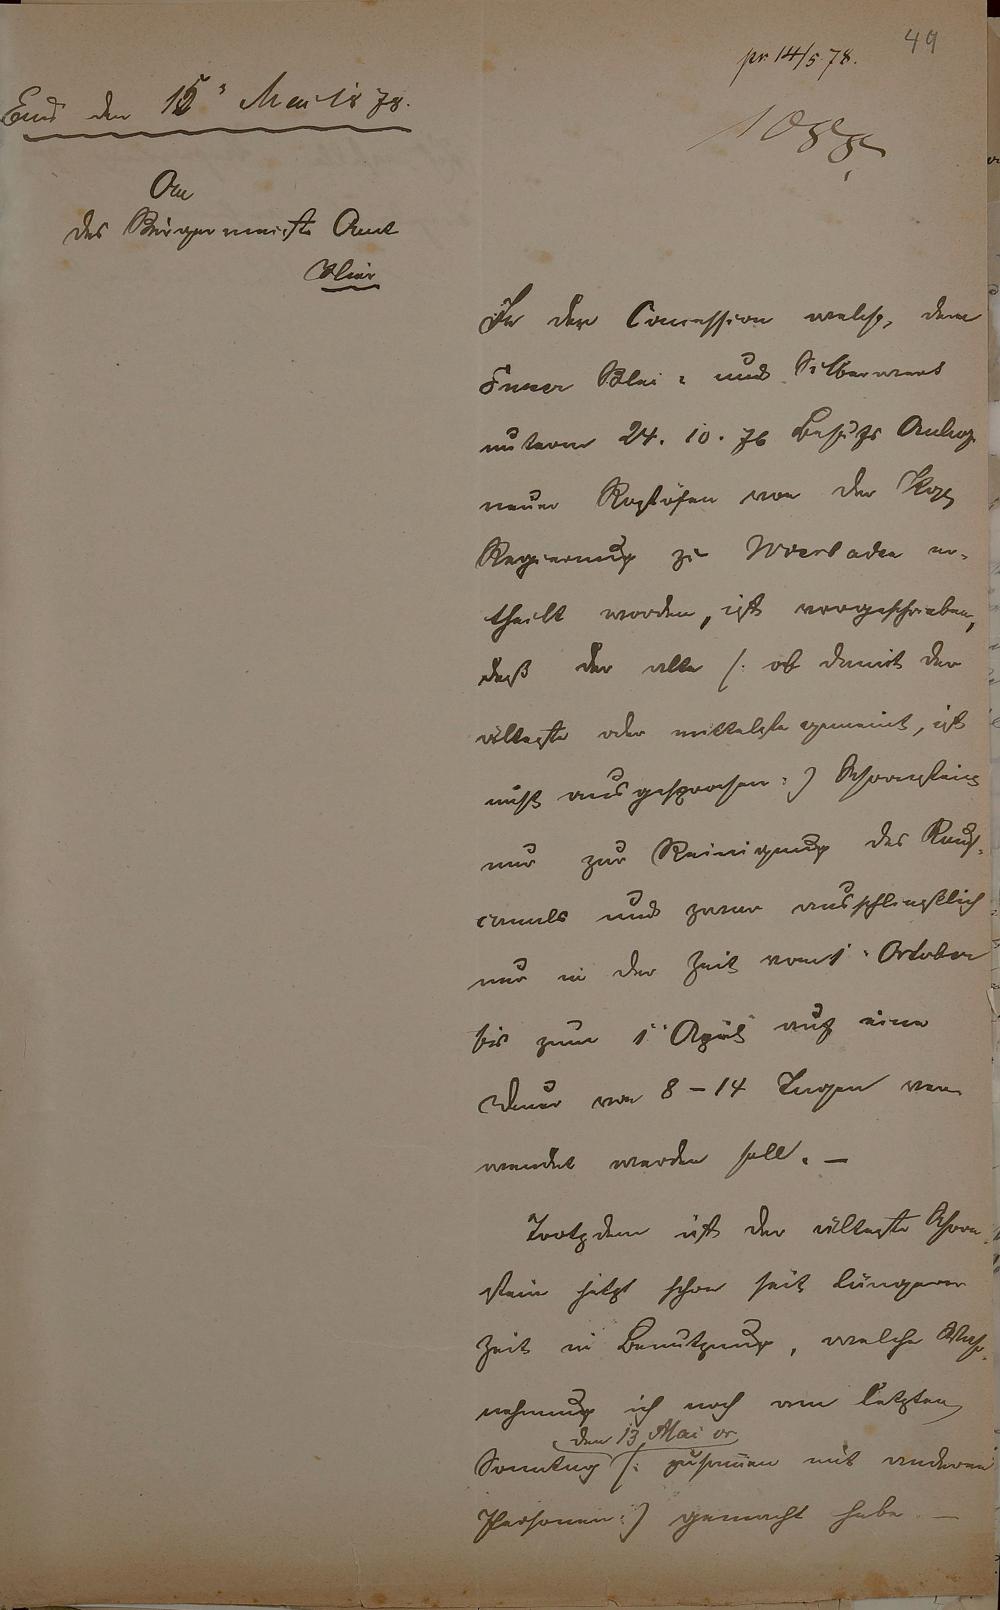 49
pr 14/5 78.
Ems den 15' Mai 1878.
An
das Bürgermeister Amt
Hier
In der Concession welche, dem
Emser Blei- und Silberwerk
unterm 24. 10. 76 behufs Anlage
neuer Röstöfen von der Kgl
Regierung zu Wiesbaden er-
theilt worden, ist vorgeschrieben,
daß der alte (: ob damit der
älteste oder mittelste gemeint, ist
nicht ausgesprochen :) Schornstein
nur zur Reinigung des Rauch-
canals und zwar ausschließlich
nur in der Zeit vom 1. October
bis zum 1. April auf eine
Dauer von 8-14 Tagen ver-
wendet werden soll. —
Trotzdem ist der älteste Schorn-
stein jetzt schon seit längerer
Zeit in Benutzung, welche Wahr-
nehmung ich noch am letzten
den 13 Mai cr
Sonntag (: zusammen mit anderen
Personen :) gemacht habe. —